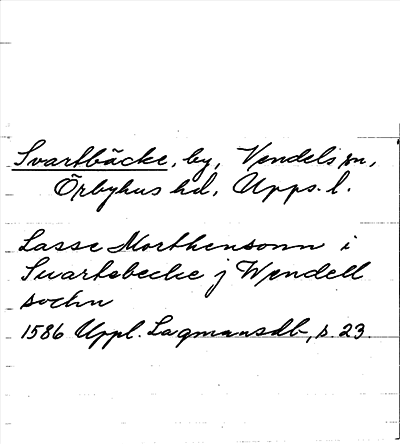 Svartbäcke, by, Vendels sn,
Örbyhus hd, Upps. l.
Lasse Morthensonn i
Suartebecke j Wendell
sochn
1586 Uppl. Lagmansdb, s. 23.